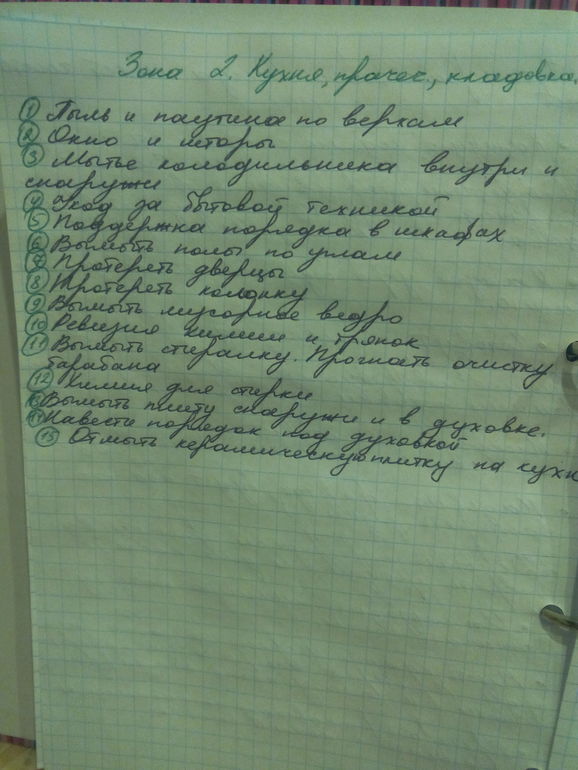 Зона 2. Кухня, прачеч., кладовка.
1 Пыль и паутина по верхам
2 Окно и шторы
3 Мытье холодильника внутри и
снаружи
4 Уход за бытовой техникой
5 Поддержка порядка в шкафах
6 Вымыть полы по углам
7 Протереть дверцы
8 Протереть колонку
9 Вымыть мусорное ведро
10 Ревизия химии и тряпок
11 Вымыть стиралку. Прогнать очистку
барабана
12 Химия для стирки
13 Вымыть плиту снаружи и в духовке.
14 Навести порядок под духовкой
15 Отмыть керамическую плитку на кухн